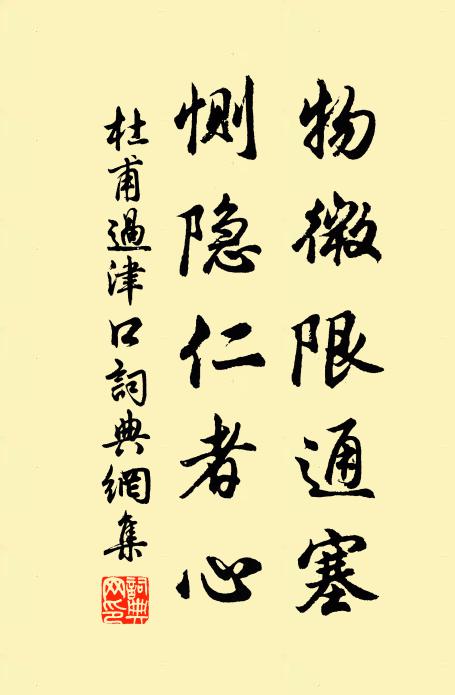 物微限通塞
恻隐仁者心
杜甫過津口詞典網集
詞典網印